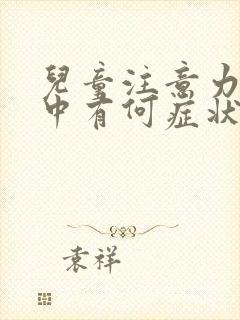 兒童注意力
中有何症狀
袁祥